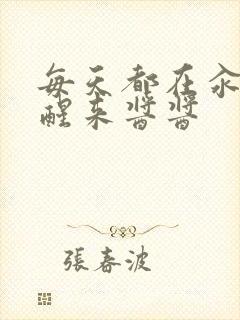 每天都在汆
醒来酱酱
張春波